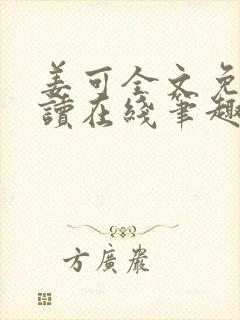 姜可全文免
讀在綫筆趣
方廣嚴